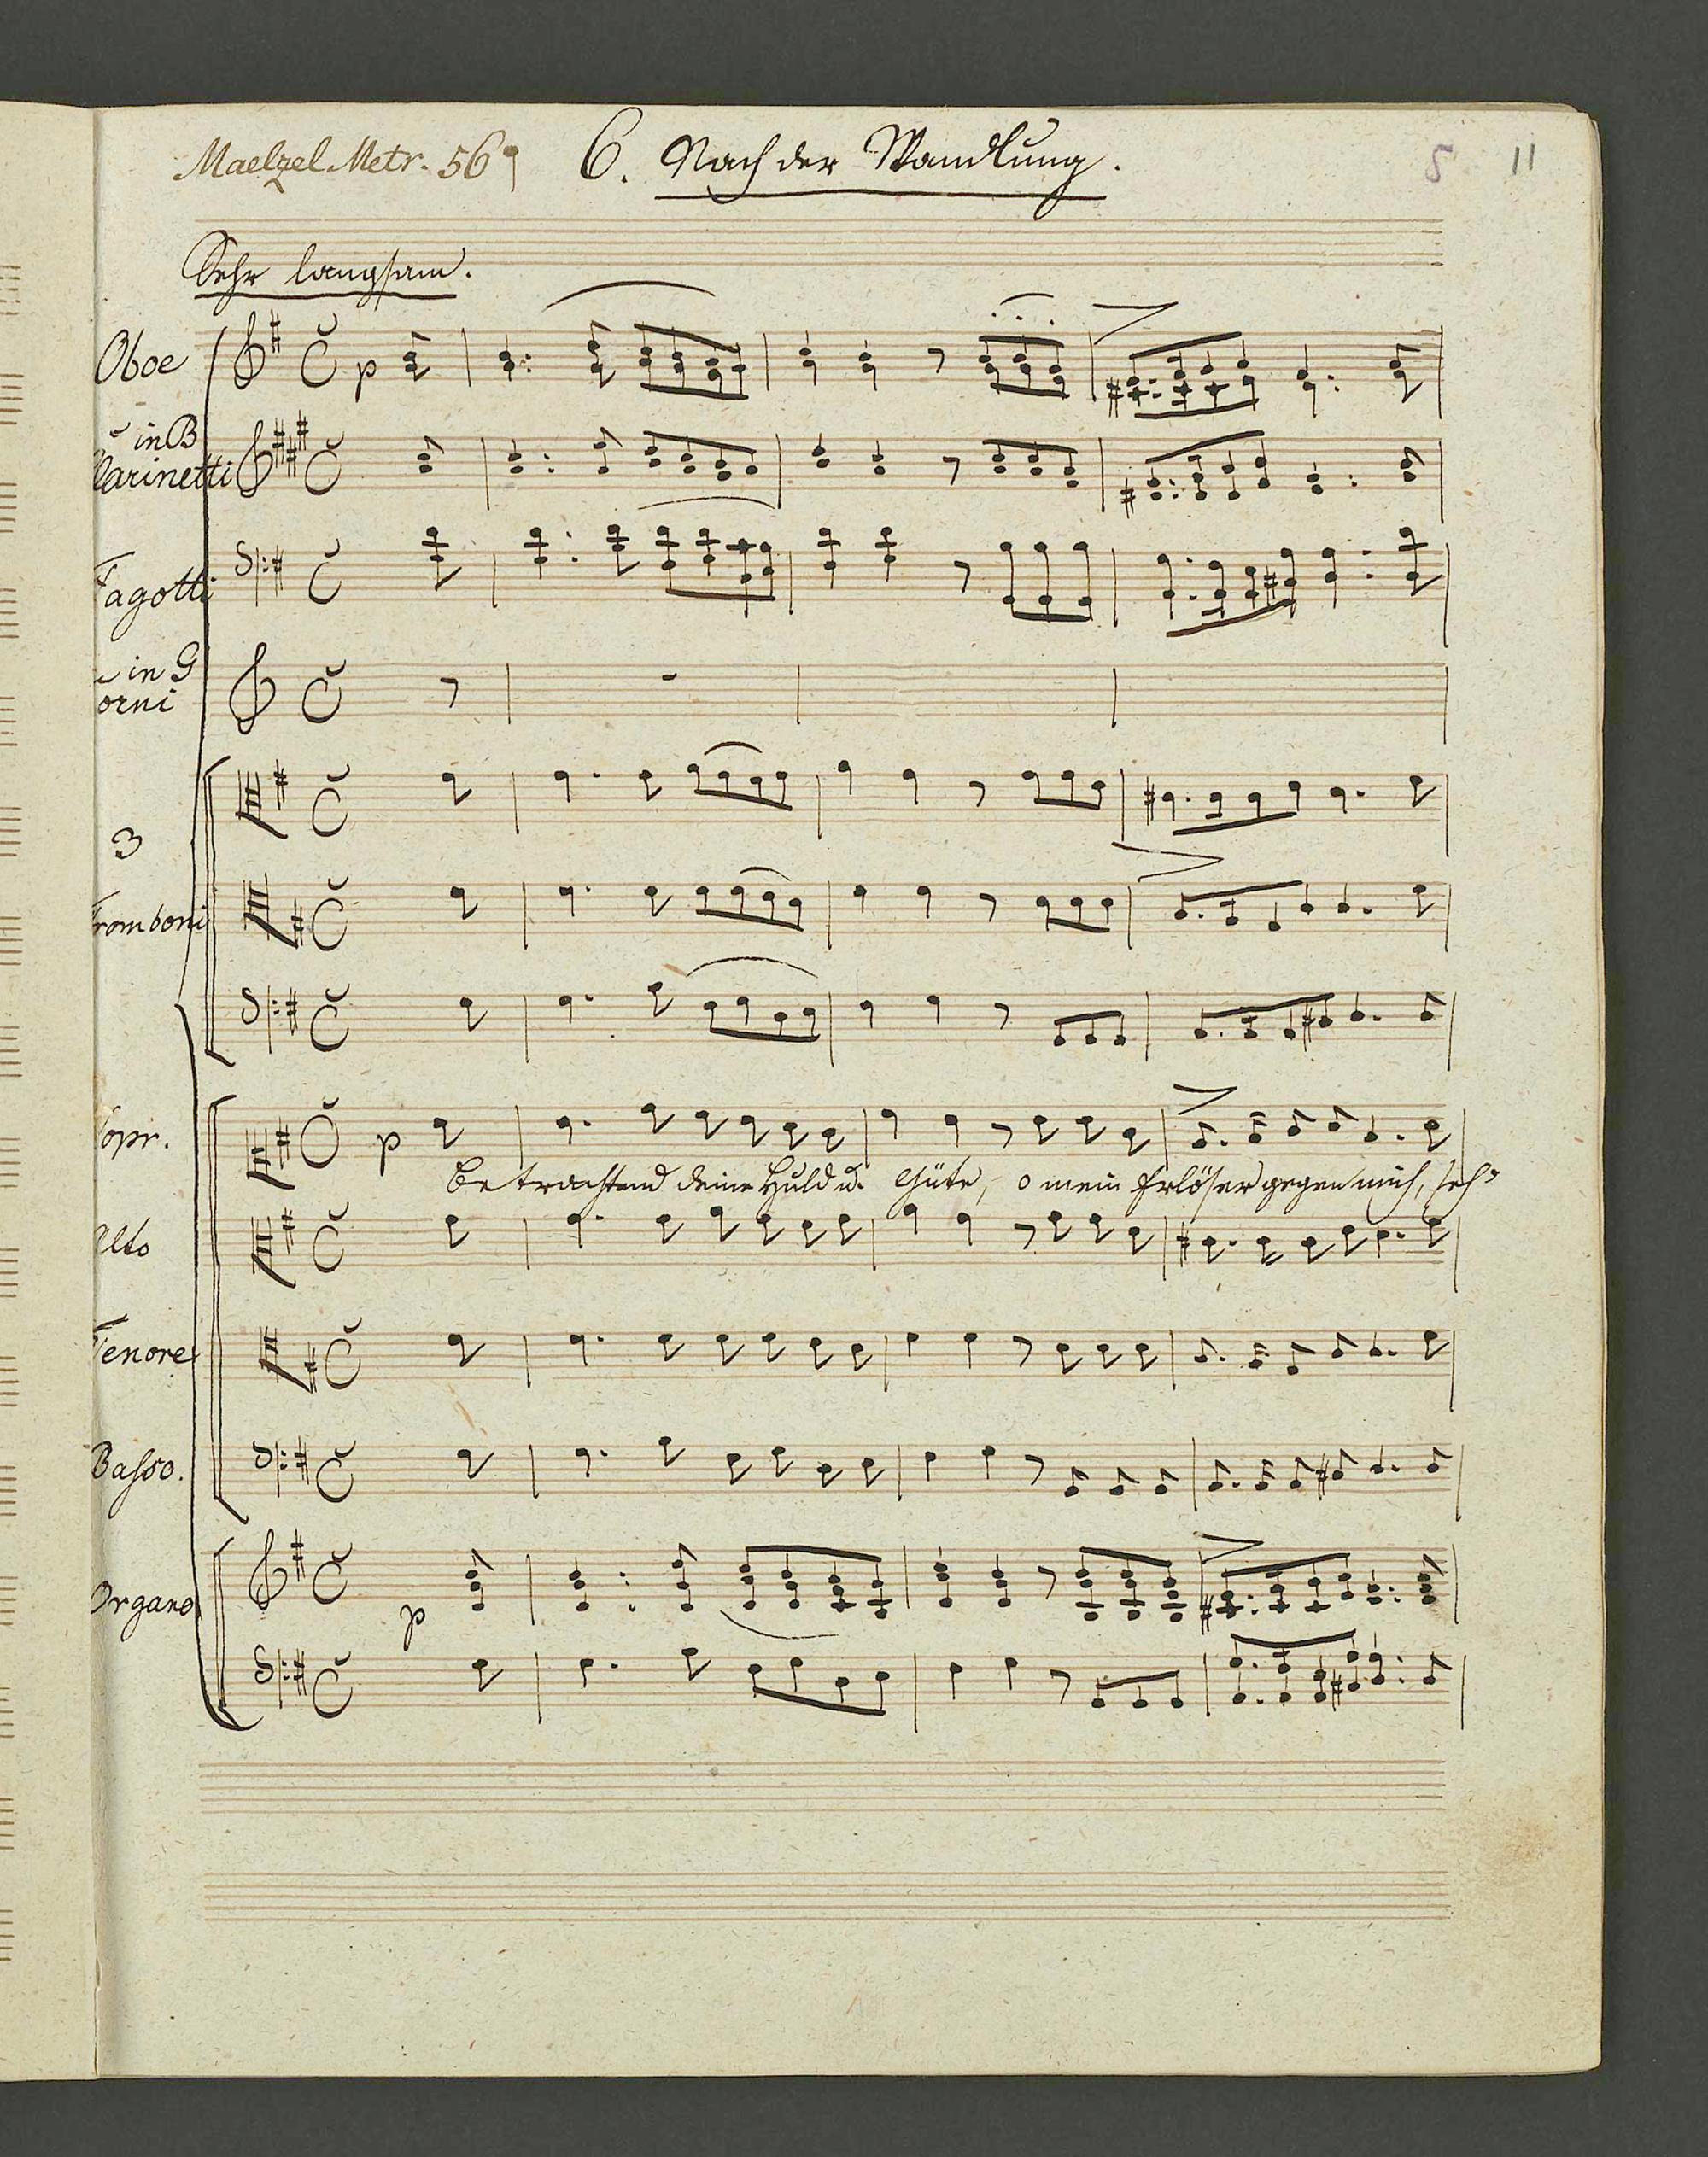 Maelzel Metr. 56 6. Nach der Wandlung. 5 11
Sehr langsam.
Oboe p
in B
Clarinetti
Fagotti
in G
orni
3
Tromboni
Sopr. p
Betrachtend deine Huld u. Güte, o mein Erlöser gegen mich, seh'
Alto
Tenore
Basso.
Organo p